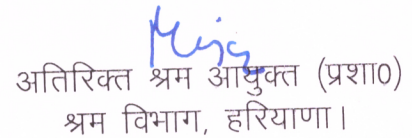 अतिरिक्त श्रम आयुक्त (प्रशा0)
श्रम विभाग, हरियाणा।